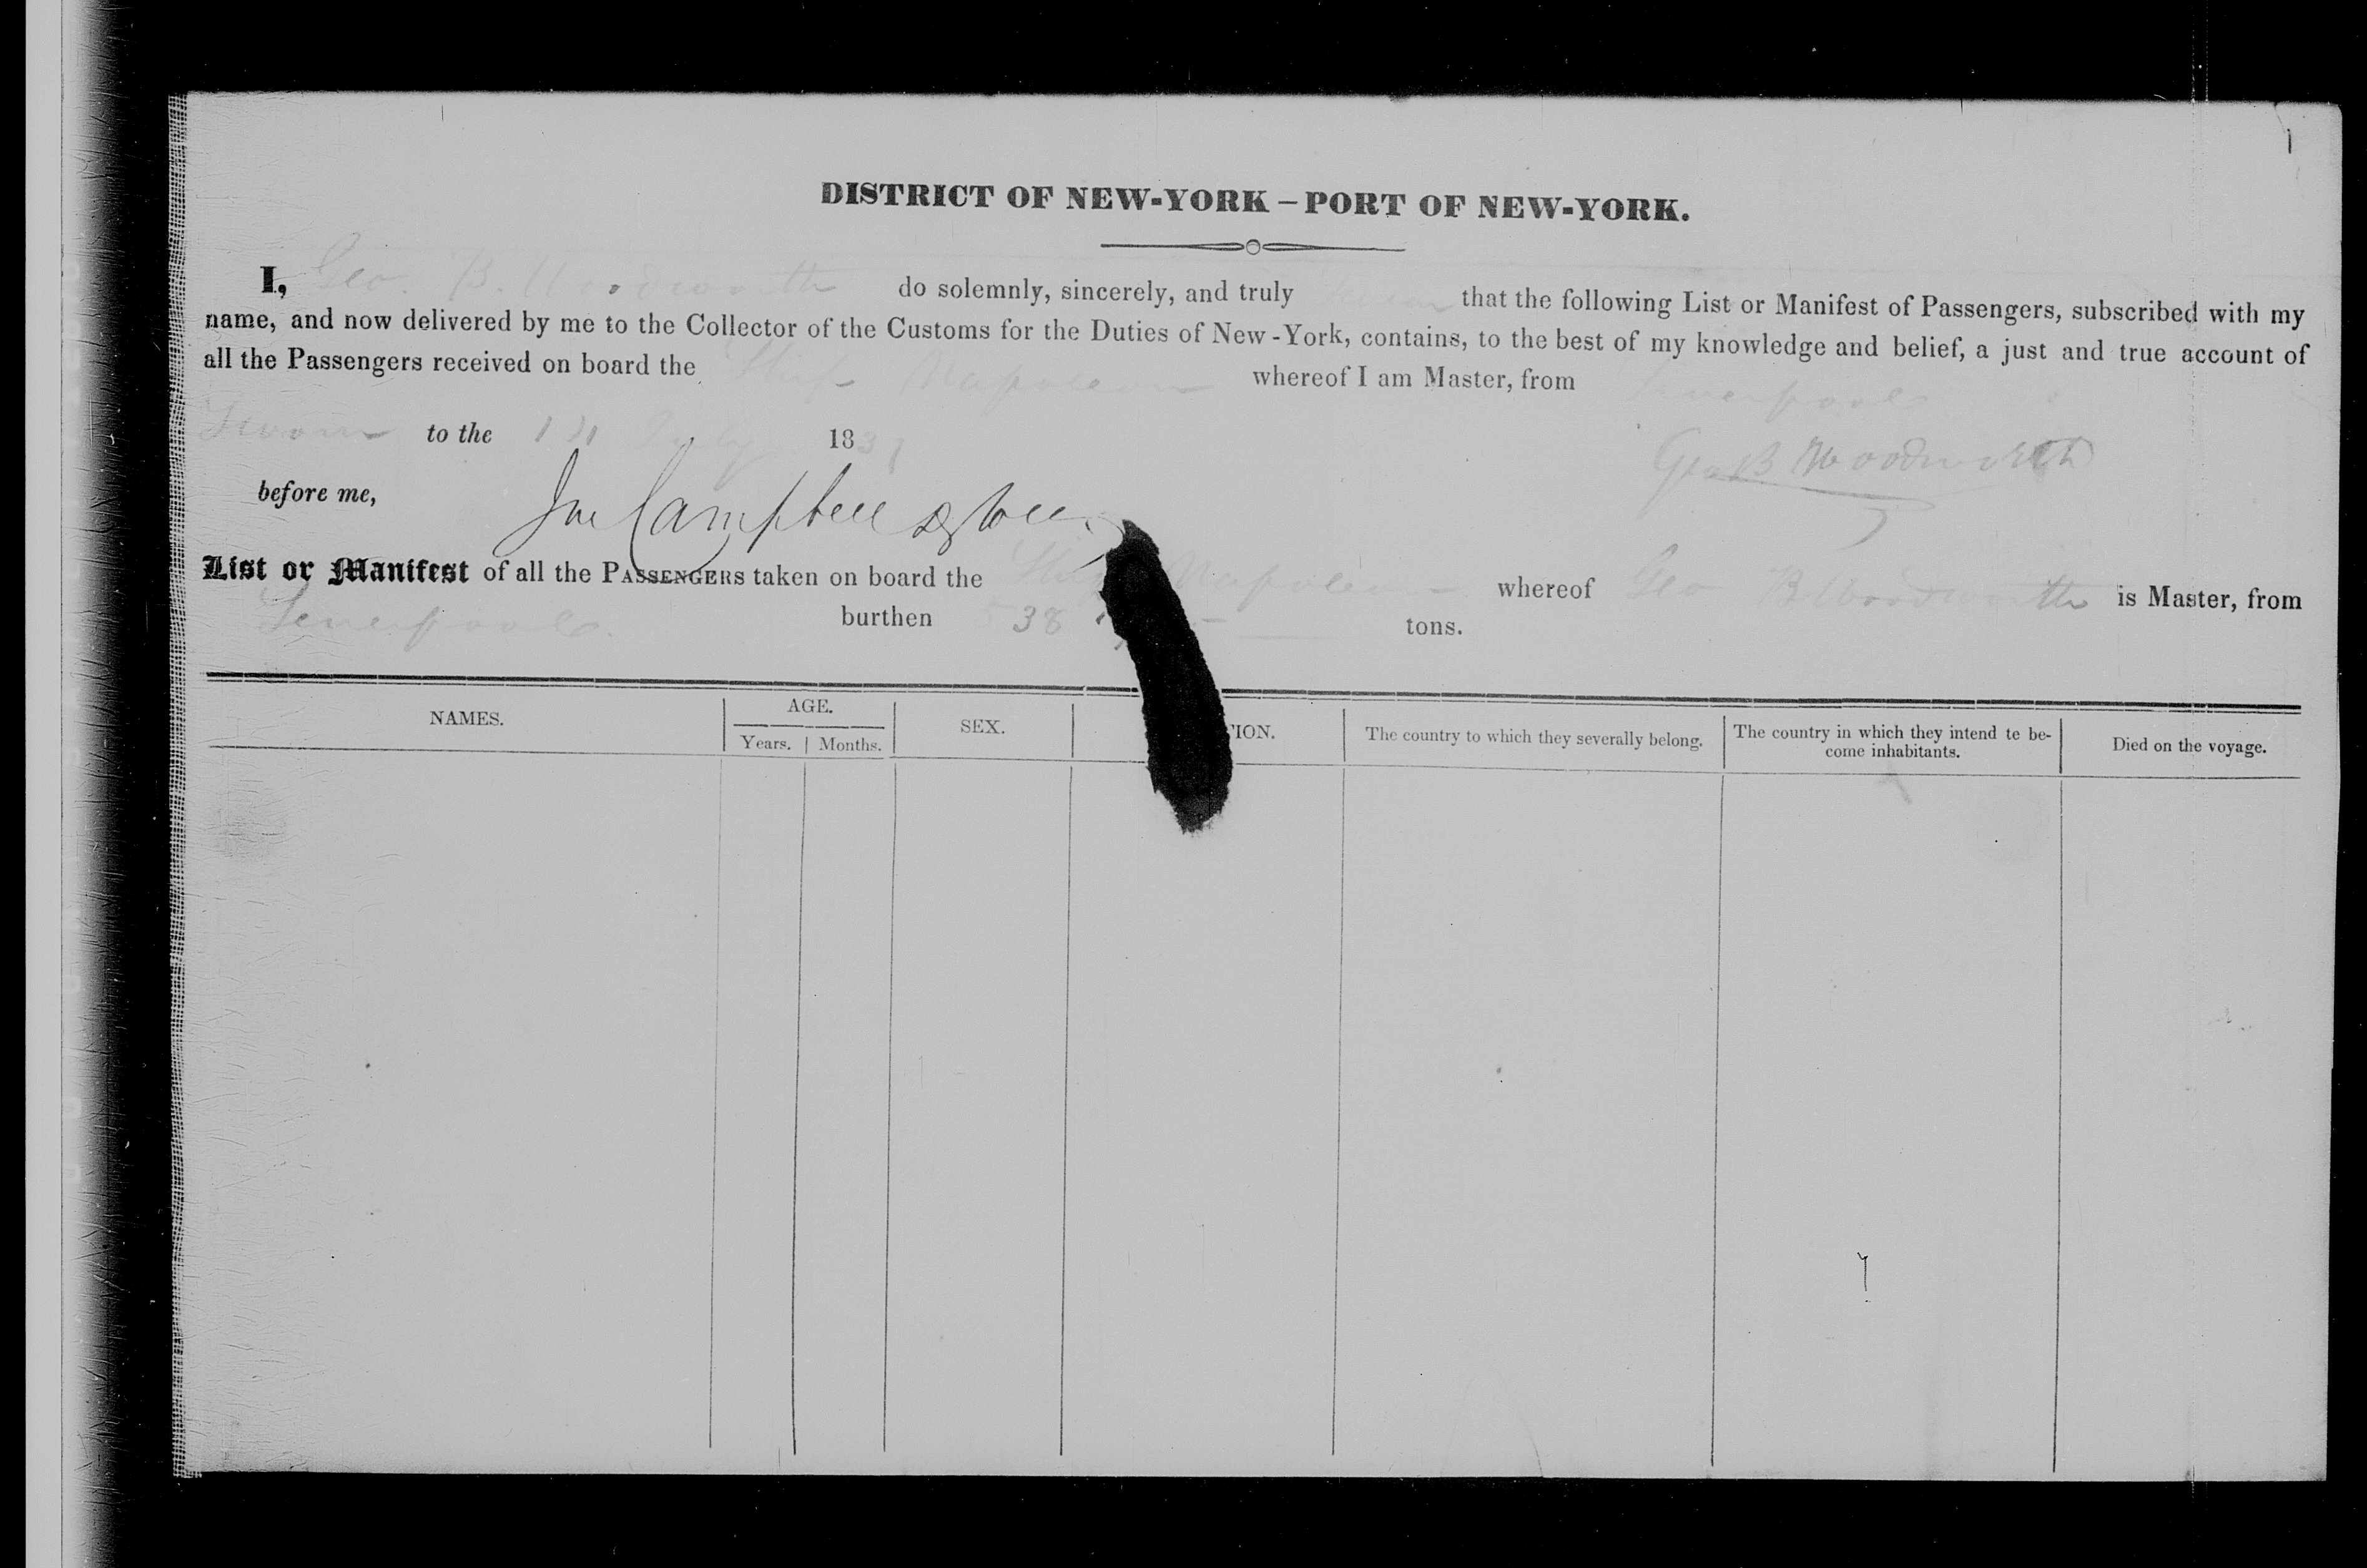 DISTRICT OF NEW-YORK – PORT OF NEW-YORK.
I, Geo. B. Woodworth do solemnly, sincerely, and truly that the following List or Manifest of Passengers, subscribed with my
name, and now delivered by me to the Collector of the Customs for the Duties of New-York, contains, to the best of my knowledge and belief, a just and true account of
all the Passengers received on board the Ship Napoleon whereof I am Master, from Liverpool
Sworn to the July 183
Geo B Woodworth
before me, Campbell
List or Manifest of all the PASSENGERS taken on board the Ship Napoleon whereof Geo B Woodworth is Master, from
Liverpool burthen 38 tons.
NAMES. AGE. SEX. TION. The country to which they severally belong. The country in which they intend te be-
come inhabitants. Died on the voyage.
Years. Months.